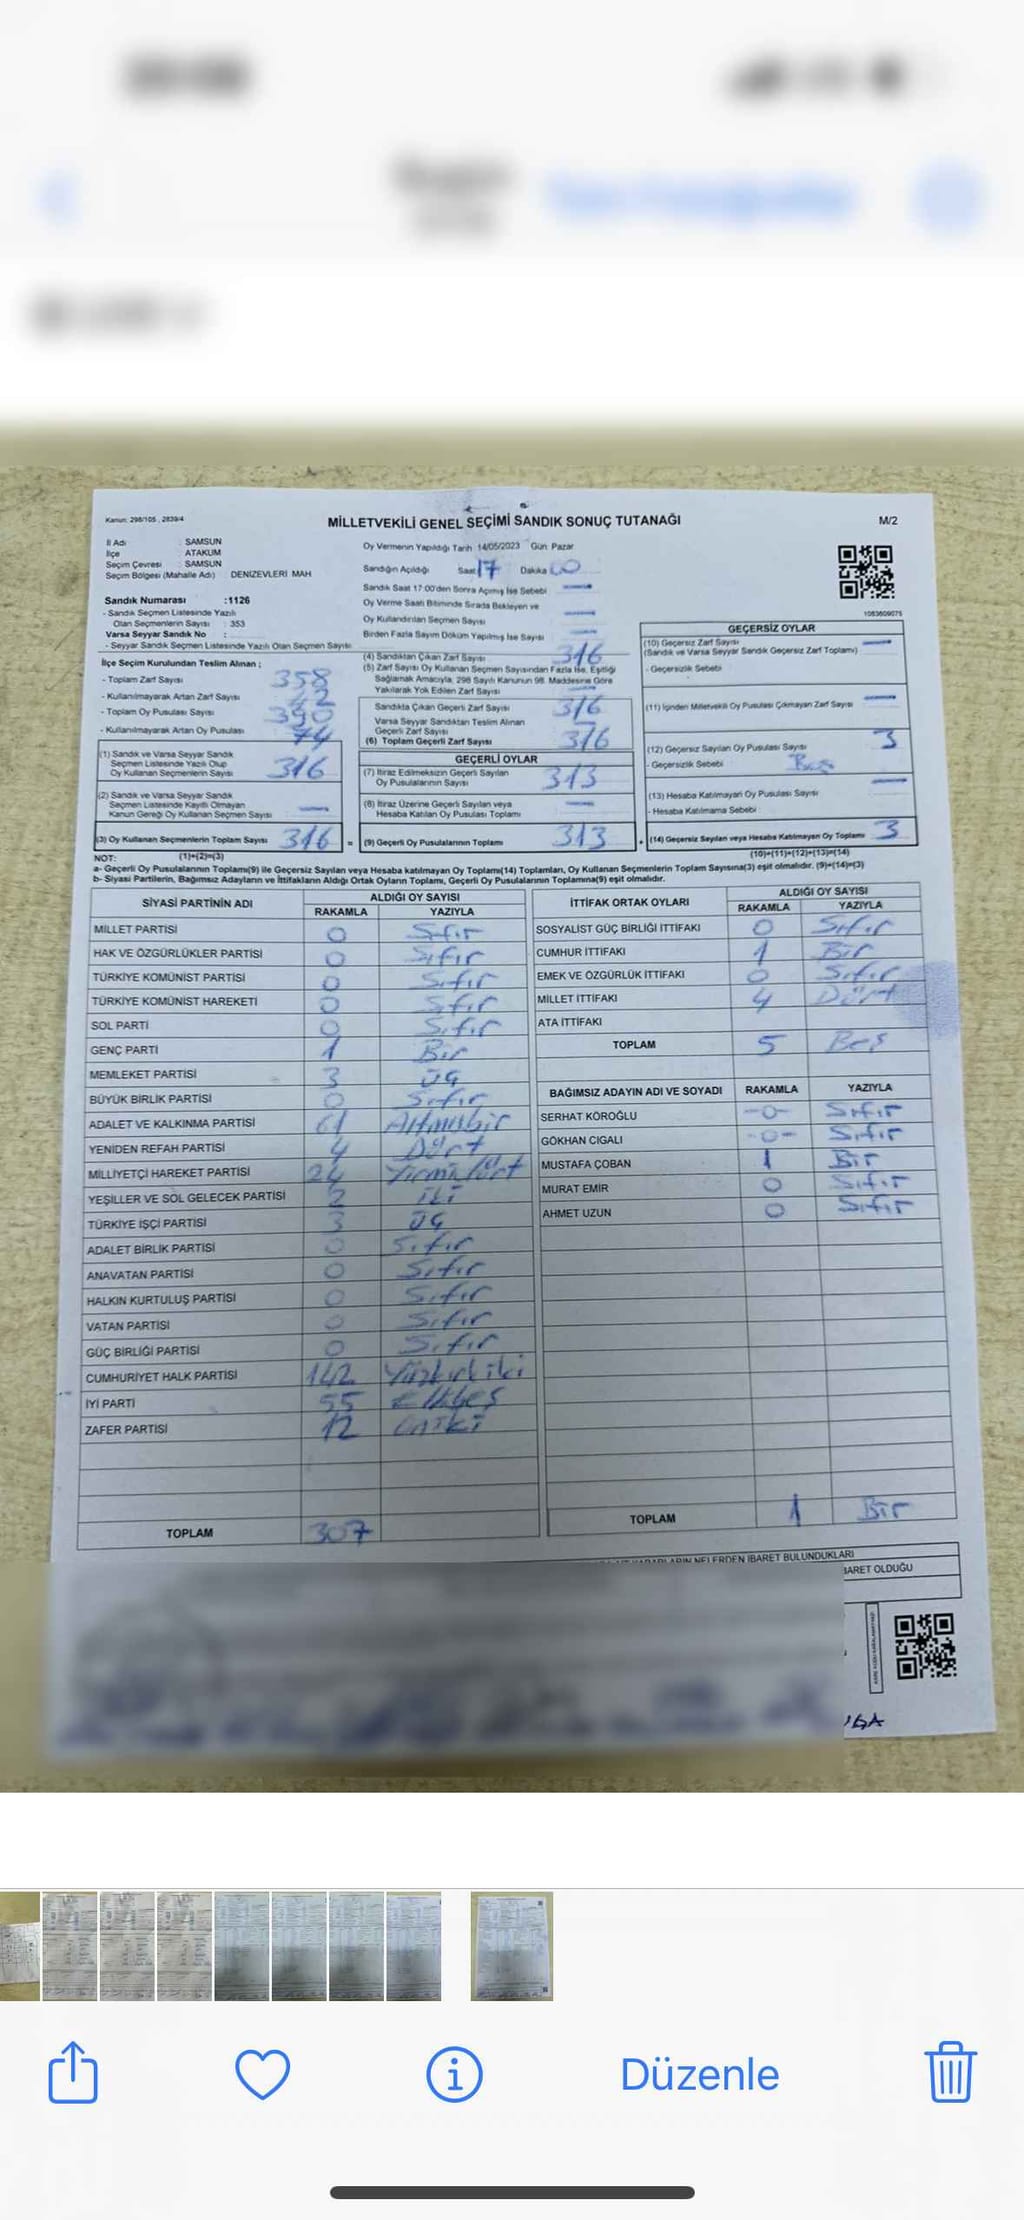 Kanun: 298/105 , 2839/4
MİLLETVEKİLİ GENEL SEÇİMİ SANDIK SONUÇ TUTANAĞI
M/2
İl Adı : SAMSUN
İlçe : ATAKUM
Seçim Çevresi : SAMSUN
Seçim Bölgesi (Mahalle Adı) : DENİZEVLERİ MAH
Sandık Numarası :1126
- Sandık Seçmen Listesinde Yazılı
Olan Seçmenlerin Sayısı : 353
Varsa Seyyar Sandık No :
- Seyyar Sandık Seçmen Listesinde Yazılı Olan Seçmen Sayısı
Oy Vermenin Yapıldığı Tarih 14/05/2023 Gün Pazar
Sandığın Açıldığı Saat 17 Dakika 00
Sandık Saat 17:00'den Sonra Açılmış İse Sebebi —
Oy Verme Saati Bitiminde Sırada Bekleyen ve
Oy Kullandırılan Seçmen Sayısı —
Birden Fazla Sayım Döküm Yapılmış İse Sayısı —
1083609075
İlçe Seçim Kurulundan Teslim Alınan ;
- Toplam Zarf Sayısı 358
- Kullanılmayarak Artan Zarf Sayısı 42
- Toplam Oy Pusulası Sayısı 390
- Kullanılmayarak Artan Oy Pusulası 74
(1) Sandık ve Varsa Seyyar Sandık
Seçmen Listesinde Yazılı Olup
Oy Kullanan Seçmenlerin Sayısı 316
(2) Sandık ve Varsa Seyyar Sandık
Seçmen Listesinde Kayıtlı Olmayan
Kanun Gereği Oy Kullanan Seçmen Sayısı —
(3) Oy Kullanan Seçmenlerin Toplam Sayısı 316 =
(1)+(2)=(3)
(4) Sandıktan Çıkan Zarf Sayısı 316
(5) Zarf Sayısı Oy Kullanan Seçmen Sayısından Fazla İse, Eşitliği
Sağlamak Amacıyla, 298 Sayılı Kanunun 98. Maddesine Göre
Yakılarak Yok Edilen Zarf Sayısı —
Sandıkta Çıkan Geçerli Zarf Sayısı 316
Varsa Seyyar Sandıktan Teslim Alınan
Geçerli Zarf Sayısı —
(6) Toplam Geçerli Zarf Sayısı 316
GEÇERLİ OYLAR
(7) İtiraz Edilmeksizin Geçerli Sayılan
Oy Pusulalarının Sayısı 313
(8) İtiraz Üzerine Geçerli Sayılan veya
Hesaba Katılan Oy Pusulası Toplamı —
(9) Geçerli Oy Pusulalarının Toplamı 313 +
GEÇERSİZ OYLAR
(10) Geçersiz Zarf Sayısı —
(Sandık ve Varsa Seyyar Sandık Geçersiz Zarf Toplamı)
- Geçersizlik Sebebi
(11) İçinden Milletvekili Oy Pusulası Çıkmayan Zarf Sayısı —
(12) Geçersiz Sayılan Oy Pusulası Sayısı 3
- Geçersizlik Sebebi Boş
(13) Hesaba Katılmayan Oy Pusulası Sayısı —
- Hesaba Katılmama Sebebi
(14) Geçersiz Sayılan veya Hesaba Katılmayan Oy Toplamı 3
(10)+(11)+(12)+(13)=(14)
NOT:
a- Geçerli Oy Pusulalarının Toplamı(9) ile Geçersiz Sayılan veya Hesaba katılmayan Oy Toplamı(14) Toplamları, Oy Kullanan Seçmenlerin Toplam Sayısına(3) eşit olmalıdır. (9)+(14)=(3)
b- Siyasi Partilerin, Bağımsız Adayların ve İttifakların Aldığı Ortak Oyların Toplamı, Geçerli Oy Pusulalarının Toplamına(9) eşit olmalıdır.
SİYASİ PARTİNİN ADI ALDIĞI OY SAYISI
RAKAMLA YAZIYLA
MİLLET PARTİSİ 0 Sıfır
HAK VE ÖZGÜRLÜKLER PARTİSİ 0 Sıfır
TÜRKİYE KOMÜNİST PARTİSİ 0 Sıfır
TÜRKİYE KOMÜNİST HAREKETİ 0 Sıfır
SOL PARTİ 0 Sıfır
GENÇ PARTİ 1 Bir
MEMLEKET PARTİSİ 3 Üç
BÜYÜK BİRLİK PARTİSİ 0 Sıfır
ADALET VE KALKINMA PARTİSİ 61 Altmışbir
YENİDEN REFAH PARTİSİ 4 Dört
MİLLİYETÇİ HAREKET PARTİSİ 24 Yirmidört
YEŞİLLER VE SOL GELECEK PARTİSİ 2 iki
TÜRKİYE İŞÇİ PARTİSİ 3 üç
ADALET BİRLİK PARTİSİ 0 Sıfır
ANAVATAN PARTİSİ 0 Sıfır
HALKIN KURTULUŞ PARTİSİ 0 Sıfır
VATAN PARTİSİ 0 Sıfır
GÜÇ BİRLİĞİ PARTİSİ 0 Sıfır
CUMHURİYET HALK PARTİSİ 142 Yüzkırkiki
İYİ PARTİ 55 Ellibeş
ZAFER PARTİSİ 12 Oniki
TOPLAM 307
İTTİFAK ORTAK OYLARI ALDIĞI OY SAYISI
RAKAMLA YAZIYLA
SOSYALİST GÜÇ BİRLİĞİ İTTİFAKI 0 Sıfır
CUMHUR İTTİFAKI 1 Bir
EMEK VE ÖZGÜRLÜK İTTİFAKI 0 Sıfır
MİLLET İTTİFAKI 4 Dört
ATA İTTİFAKI
TOPLAM 5 Beş
BAĞIMSIZ ADAYIN ADI VE SOYADI RAKAMLA YAZIYLA
SERHAT KÖROĞLU -0- Sıfır
GÖKHAN CIGALI -0- Sıfır
MUSTAFA ÇOBAN 1 Bir
MURAT EMİR 0 Sıfır
AHMET UZUN 0 Sıfır
TOPLAM 1 Bir
NELERDEN İBARET BULUNDUKLARI
İBARET OLDUĞU
Düzenle